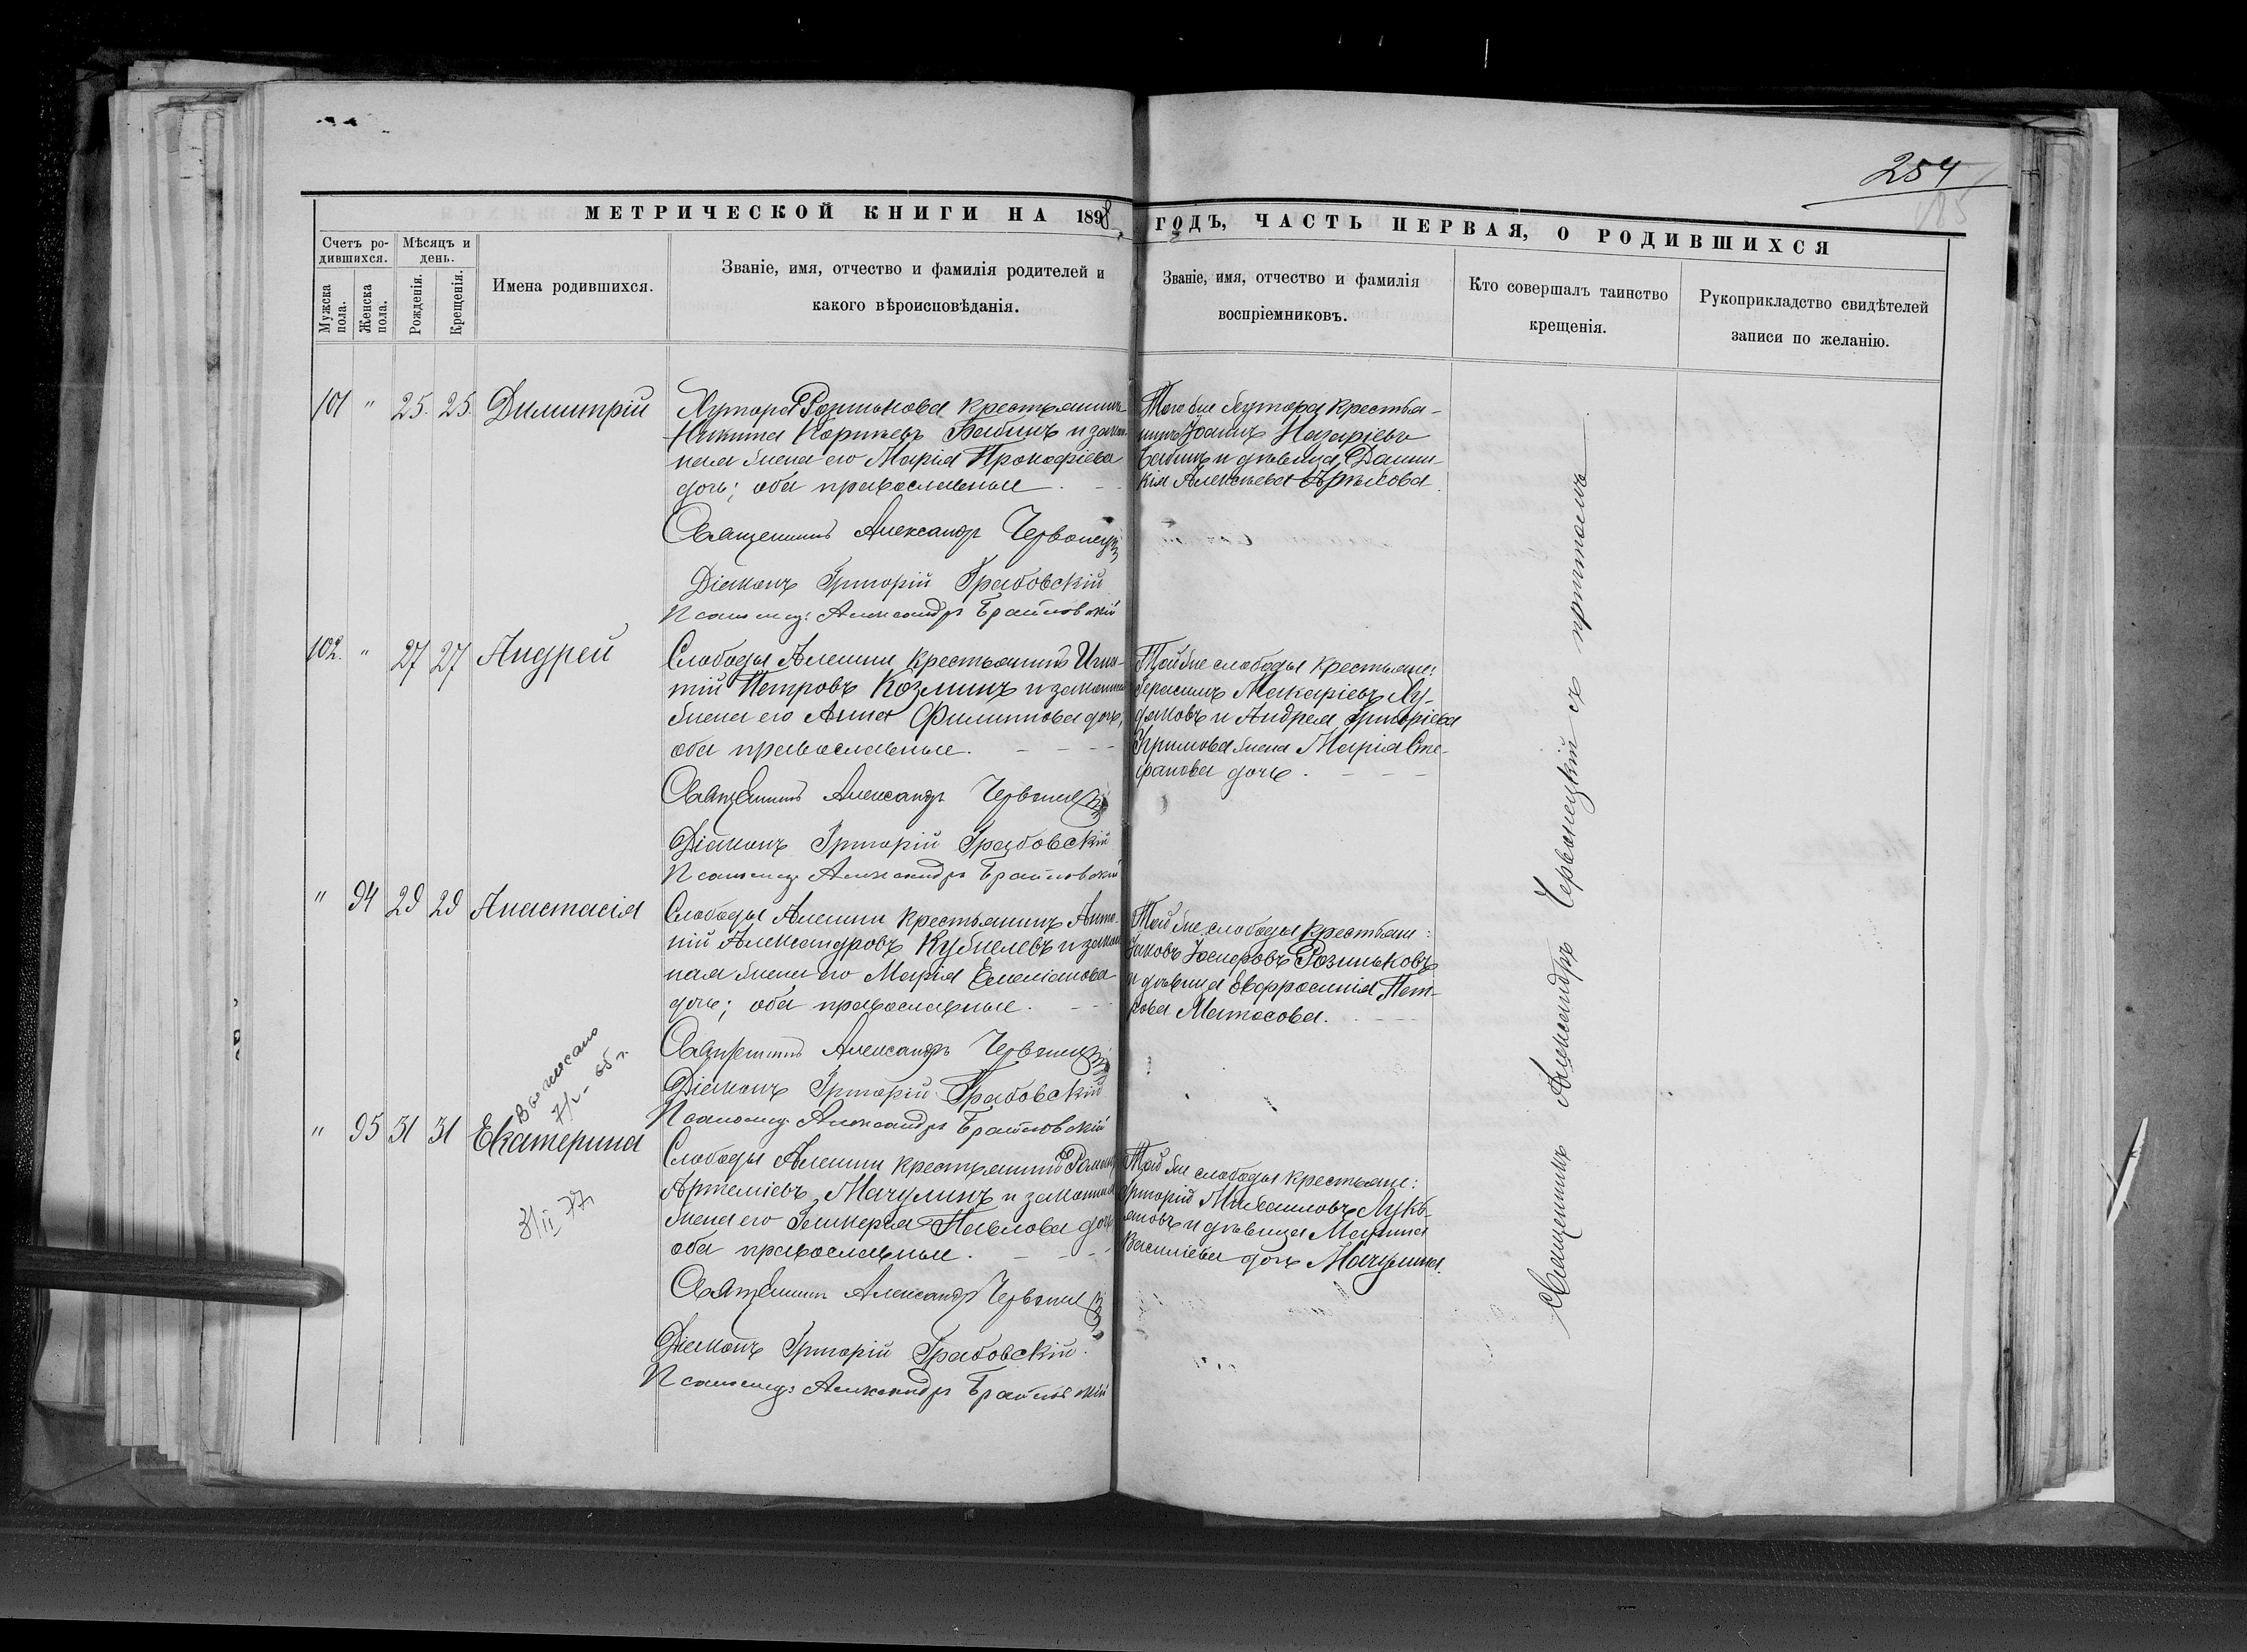 254
185
МЕТРИЧЕСКОЙ КНИГИ НА 1898 ГОДЪ, ЧАСТЬ ПЕРВАЯ, О РОДИВШИХСЯ
Счетъ ро-
дившихся.
Мѣсяцъ и
день.
Мужска
пола.
Женска
пола.
Рожденія.
Крещенія.
Имена родившихся.
Званіе, имя, отчество и фамилія родителей и
какого вѣроисповѣданія.
Званіе, имя, отчество и фамилія
воспріемниковъ.
Кто совершалъ таинство
крещенія.
Рукоприкладство свидѣтелей
записи по желанію.
101 " 25. 25. Димитрій
Хутора Розинькова крестьянинъ
Никита Бабинъ и закон-
ная жена его Марія Прокофіева
дочь; оба православные.
Того же хутора крестья-
нинъ Іоаннъ Назаріевъ
Бабинъ и дѣвица Домни-
кія Алексѣева
Священникъ Александръ Червонецкій
Діаконъ Григорій Грабовскій
Псаломщ: Александръ Браиловскій
102. " 27 27 Андрей
Слободы Алешни крестьянинъ Игна-
тій Петровъ Козминъ и законная
жена его Анна Филиппова дочь,
оба православные.
Той же слободы крестьяне:
Герасимъ Макаріевъ Ху-
дяковъ и Андрея Григоріева
жена Марія Сте-
фанова дочь.
Священникъ Александръ Червонецкій
Діаконъ Григорій Грабовскій
Псаломщ: Александръ Браиловскій
" 94 29 29 Анастасія
Слободы Алешни крестьянинъ Анто-
ній Александровъ Кубжелевъ и закон-
ная жена его Марія Емеліанова
дочь; оба православные.
Той же слободы крестьяне:
Іаковъ Іосифовъ Розиньковъ
и дѣвица Евфросинія Пет-
рова Матосова.
Священникъ Александръ Червонецкій
Діаконъ Григорій Грабовскій
Псаломщ: Александръ Браиловскій
Выписано
" 95 31 31 Екатерина
Слободы Алешни крестьянинъ Романъ
Артеміевъ Мачулинъ и законная
жена его Гликерія Павлова дочь
оба православные.
Той же слободы крестьяне:
Григорій Михаиловъ Лукь-
яновъ и дѣвица Марина
Василіева дочь Мачулина.
3/II 77
Священникъ Александръ Червонецкій
Діаконъ Григорій Грабовскій.
Псаломщ: Александръ Браиловскій
Священникъ Александръ Червонецкій съ причтомъ